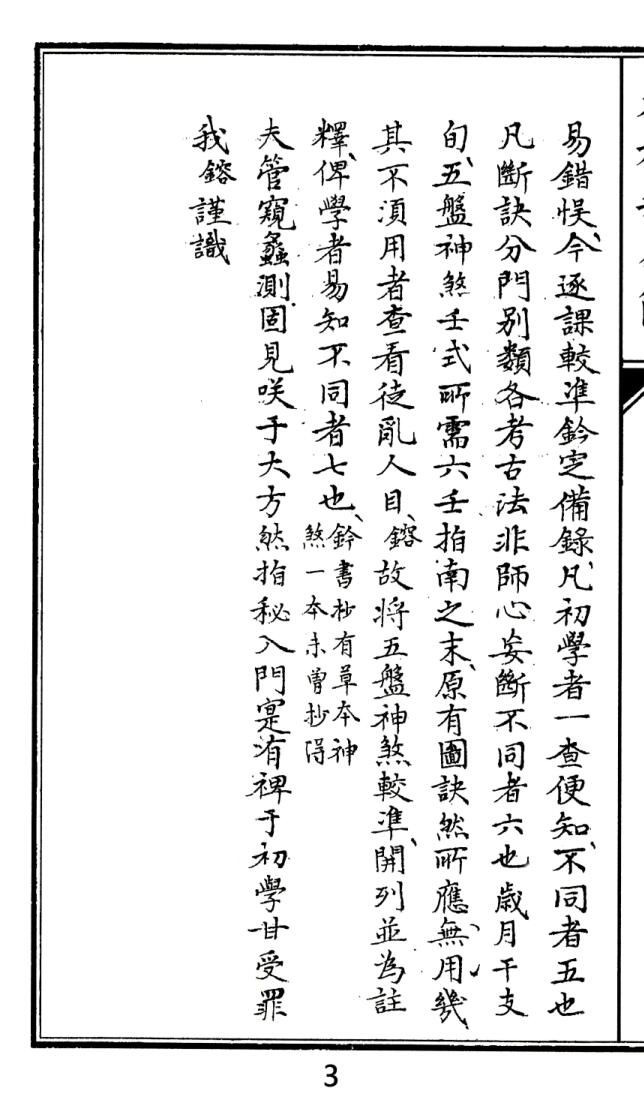 易錯悮今逐課較準鈐定備錄凡初學者一查便知不同者五也
凡斷訣分門别類各考古法非師心妄斷不同者六也歲月干支
旬五盤神煞壬式所需六壬指南之末原有圖訣然所應無用幾
其不湏用者查看徒亂人目鎔故将五盤神煞較準開列並為註
釋俾學者易知不同者七也
鈐書抄有草本神
煞一本未曾抄得
夫管窺蠡測固見咲于大方然指秘入門寔有裨于初學甘受罪
我鎔謹識
3